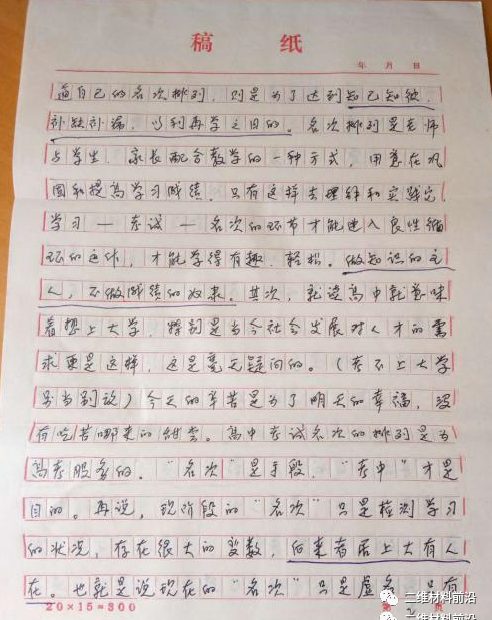 稿 纸
年 月 日
道自己的名次排列,则是为了达到知己知彼,
补缺补漏,以利再学之目的。名次排列是老师
与学生、家长配合教学的一种方式,用意在巩
固和提高学习成绩。只有这样去理解和实践
学习—考试—名次的环节才能进入良性循
环的运作,才能学得有趣、轻松。做知识的主
人,不做成绩的奴隶。其次,就读高中就意味
着想上大学,特别是当今社会发展对人才的需
求更是这样,这是毫无疑问的。(考不上大学
另当别说)今天的辛苦是为了明天的幸福,没
有吃苦哪来的甜尝。高中考试名次的排列是为
高考服务的。“名次”是手段,“考中”才是
目的。再说,现阶段的“名次”只是检测学习
的状况,存在很大的变数,后来者居上大有人
在。也就是说现在的“名次”只是虚名,只有
20×15=300
第 2 页
二维材料前沿
二维材料前沿